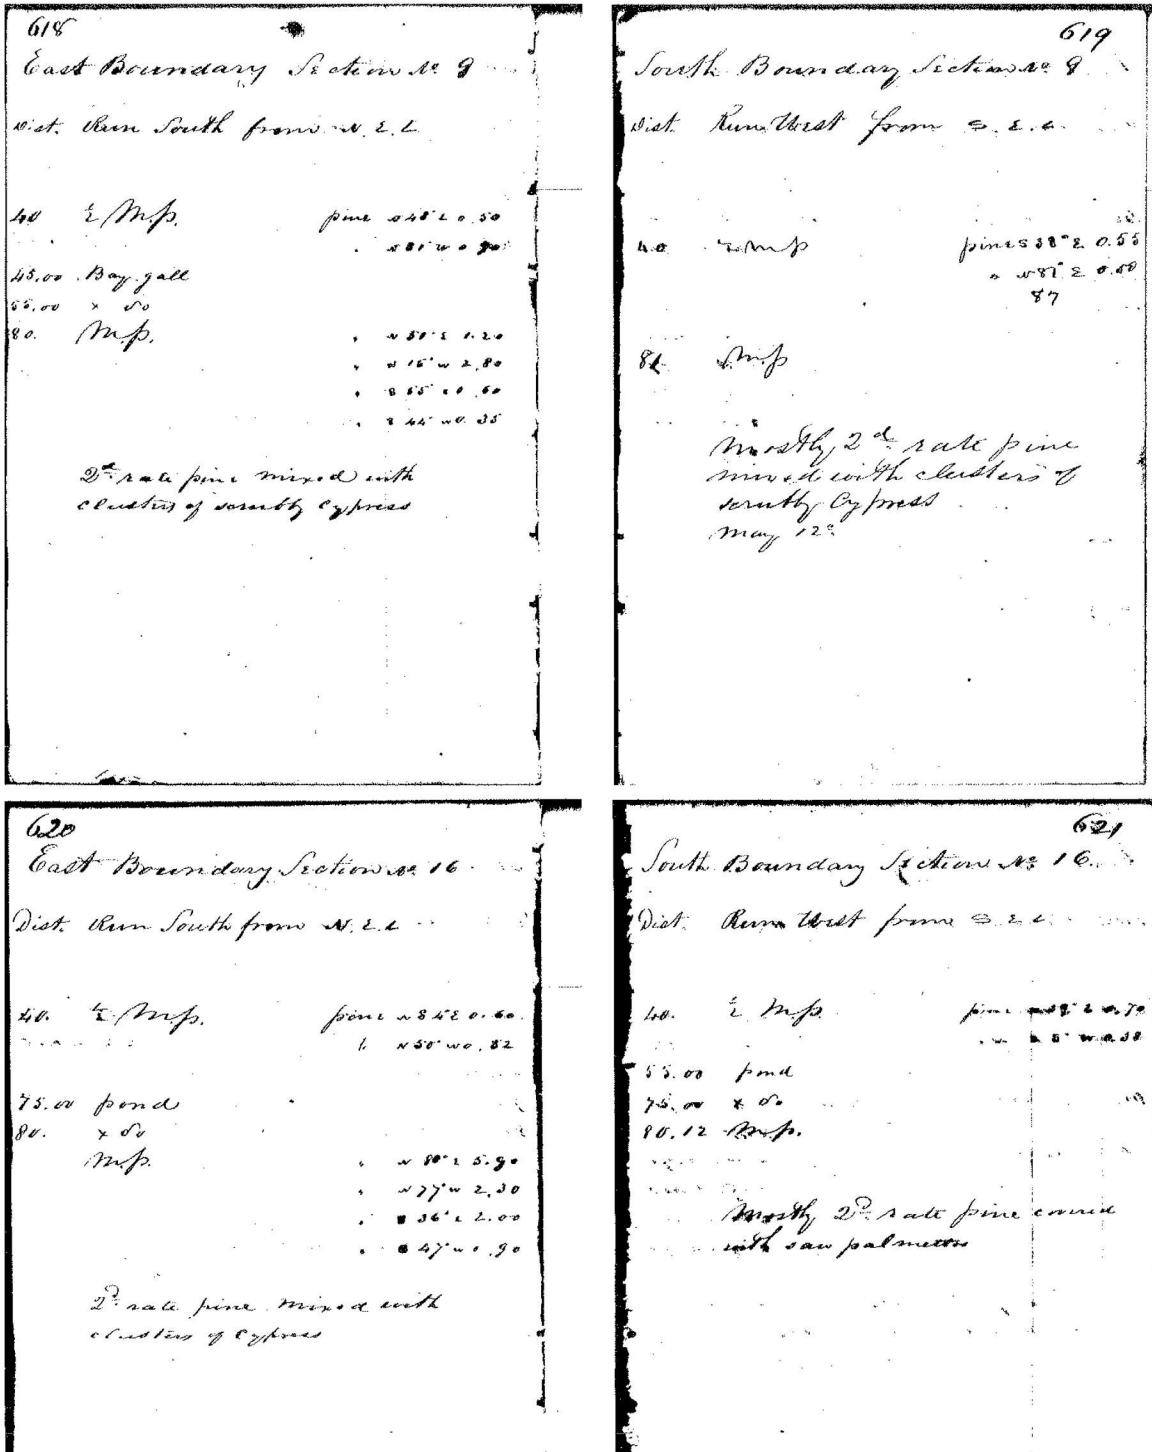 618
East Boundary Section No 9
Dist. Run South from N. E. C
40 ½ M.P. pine 0.50
45.00 Bay gall
55.00 x do
80. M.P. " N 51° E 1.20
" N 15° W 2.80
" S 55° E 0.60
" S 44° W 0.35
2d rate pine mixed with
clusters of scrubby Cypress
619
South Boundary Section No 9
Dist. Run West from S. E. C.
40 ½ M.P. pine S 38° E 0.55
" N 87° E 0.50
87
M.P
Mostly 2d rate pine
mixed with clusters of
scrubby Cypress
May 12
620
East Boundary Section No 16
Dist. Run South from N. E. C
40. ½ M.P. pine N 84 E 0.60.
N 50° W 0.52
75.00 pond
80. x do
M.P. " N 80° E 5.90
" N 77° W 2.30
" S 36° E 2.00
" S 47° W 0.90
2d rate pine mixed with
clusters of Cypress
621
South Boundary Section No 16.
Dist. Run West from S. E. C.
40. ½ M.P. pine 0.70
55.00 pond
75.00 x do
80.12 M.P.
Mostly 2d rate pine covered
with saw palmetto